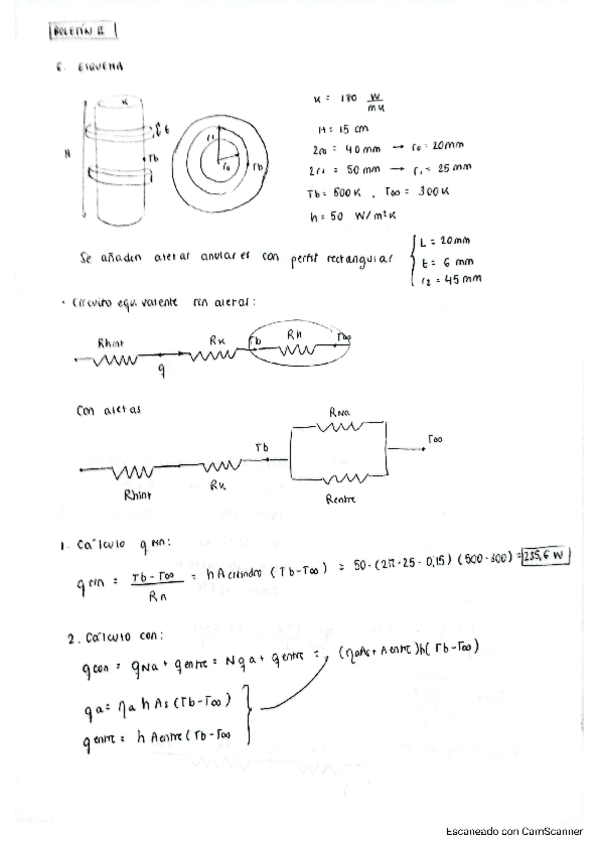 BOLETÍN II
6. ESQUEMA
K
H
t
Tb
r1
r0
Tb
K = 180 W/mK
H = 15 cm
2r0 = 40 mm → r0 = 20mm
2r1 = 50 mm → r1 = 25 mm
Tb = 500 K , T∞ = 300 K
h = 50 W/m²K
Se añaden aletas anulares con perfil rectangular { L = 20mm
t = 6 mm
r2 = 45 mm
· Circuito equivalente sin aletas:
Rhint
q
Rk
Tb
Rh
T∞
Con aletas
Rhint
Rk
Tb
RNa
Rentre
T∞
1. Cálculo q sin:
q sin = Tb - T∞ / Rh = h A cilindro (Tb - T∞) = 50 · (2π · 25 · 0,15) (500 - 300) = 235,6 W
2. Cálculo con:
q con = qNa + q entre = N qa + q entre = (ηaAs + A entre) h (Tb - T∞)
qa = ηa h As (Tb - T∞)
q entre = h A entre (Tb - T∞
Escaneado con CamScanner